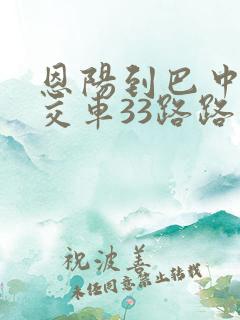 恩陽到巴中
交車33路路
祝波善
未经同意禁止转载